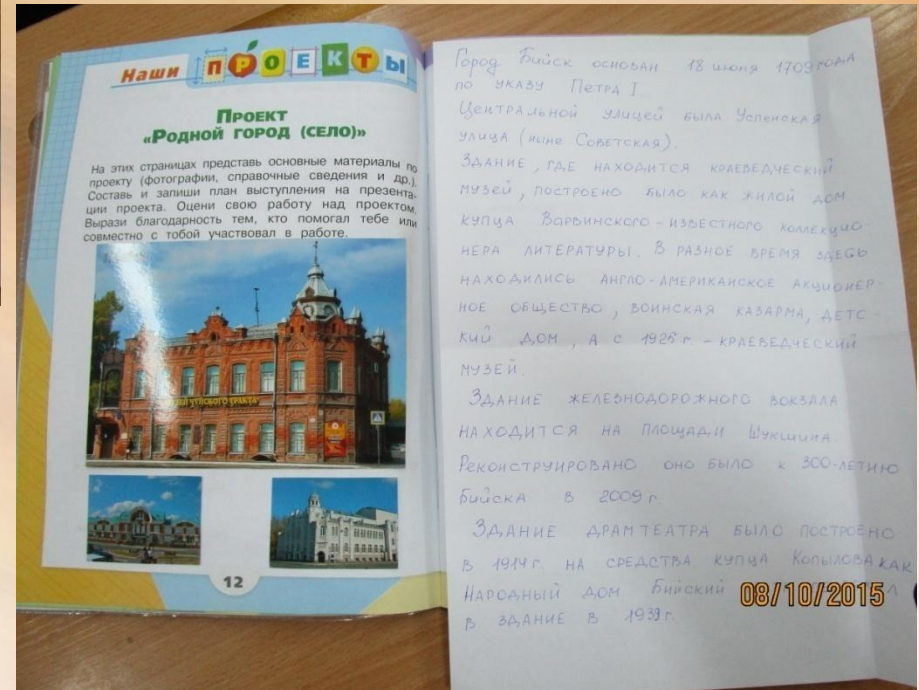 Наши ПРОЕКТЫ
ПРОЕКТ
«РОДНОЙ ГОРОД (СЕЛО)»
На этих страницах представь основные материалы по
проекту (фотографии, справочные сведения и др.).
Составь и запиши план выступления на презента-
ции проекта. Оцени свою работу над проектом.
Вырази благодарность тем, кто помогал тебе или
совместно с тобой участвовал в работе.
МУЗЕЙ ЧУЙСКОГО ТРАКТА
12
Город Бийск основан 18 июня 1709 года
по указу Петра I
Центральной улицей была Успенская
улица (ныне Советская).
Здание, где находится краеведческий
музей, построено было как жилой дом
купца Варвинского - известного коллекцио-
нера литературы. В разное время здесь
находились англо-американское акционер-
ное общество, воинская казарма, детс-
кий дом, а с 1925 г - краеведческий
музей.
Здание железнодорожного вокзала
находится на площади Шукшина.
Реконструировано оно было к 300-летию
Бийска в 2009 г
Здание драмтеатра было построено
в 1914 г. на средства купца Копылова как
Народный дом Бийский
в здание в 1939 г.
08/10/2015